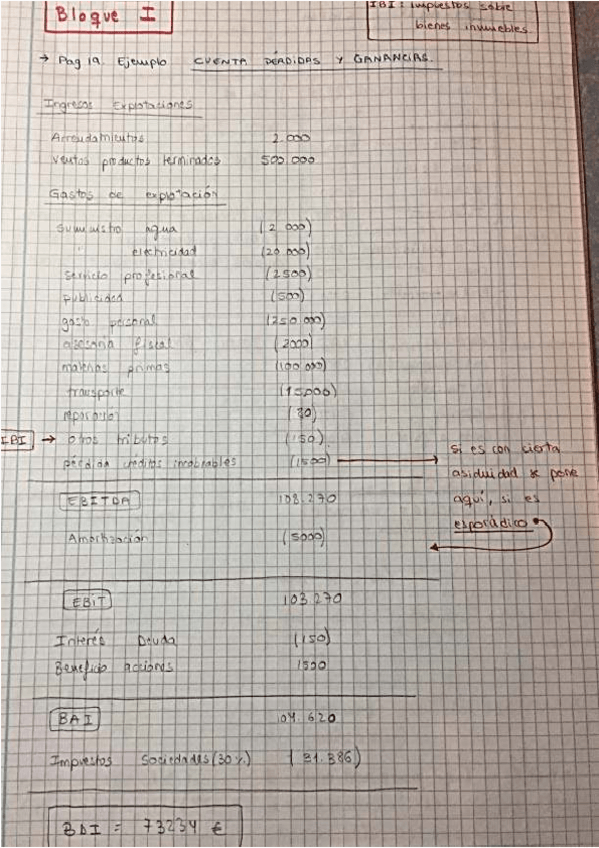 Bloque I
IBI: impuestos sobre
bienes inmuebles.
→ Pag 19. Ejemplo CUENTA PÉRDIDAS Y GANANCIAS.
Ingresos Explotaciones
Arrendamientos 2.000
ventas productos terminados 500.000
Gastos de explotación
Suministro agua (2 000)
" electricidad (20 000)
servicio profesional (2500)
publicidad (500)
gasto personal (250 000)
asesoria fiscal (2000)
materias primas (100 000)
transporte (15000)
(30)
IBI → otros tributos (150)
pérdida créditos incobrables (1500) →
si es con cierta
asiduidad se pone
aquí, si es
esporádico
EBITDA 108.270
Amortización (5000)
EBIT 103.270
Interés Deuda (150)
Beneficio acciones 1500
BAI 04.620
Impuestos Sociedades (30%) (31.386)
BDI = 73234 €